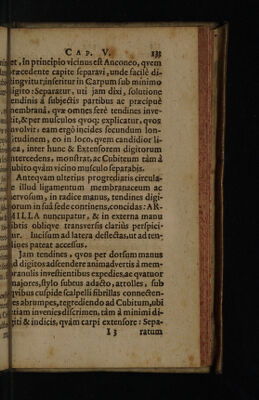 CAP. V. 133
et. In principio vicinus est Anconeo, qvem
præcedente capite separavi, unde facilè di-
tingvitur, inseritur in Carpum sub minimo
digito: Separatur, uti jam dixi, solutione
tendinis à subjectis partibus ac præcipuè
membranâ, qvæ omnes ferè tendines inve-
stit, & per musculos qvoq; explicatur, qvos
involvit: eam ergò incides secundum lon-
gitudinem, eo in loco, qvem candidior li-
nea, inter hunc & Extensorem digitorum
intercedens, monstrat, ac Cubiteum tàm à
cubito qvàm vicino musculo separabis.
Anteqvam ulterius progrediaris circula-
re illud ligamentum membranaceum ac
nervosum, in radice manus, tendines digi-
torum in suâ sede continens, concidas: AR-
MILLA nuncupatur, & in externa manu
fibris obliqve transversis clariùs perspici-
tur. Incisum ad latera deflectas, ut ad ten-
dines pateat accessus.
Jam tendines, qvos per dorsum manus
ad digitos adscendere animadvertis à mem-
branulis investientibus expedies, ac qvatuor
majores, stylo subeus adacto, attolles, sub
qvibus cuspide scalpelli fibrillas connecten-
tes abrumpes, regrediendo ad Cubitum, ubi
etiam invenies discrimen, tàm à minimi di-
giti & indicis, qvàm carpi extensore: Sepa-
I 3 ratum